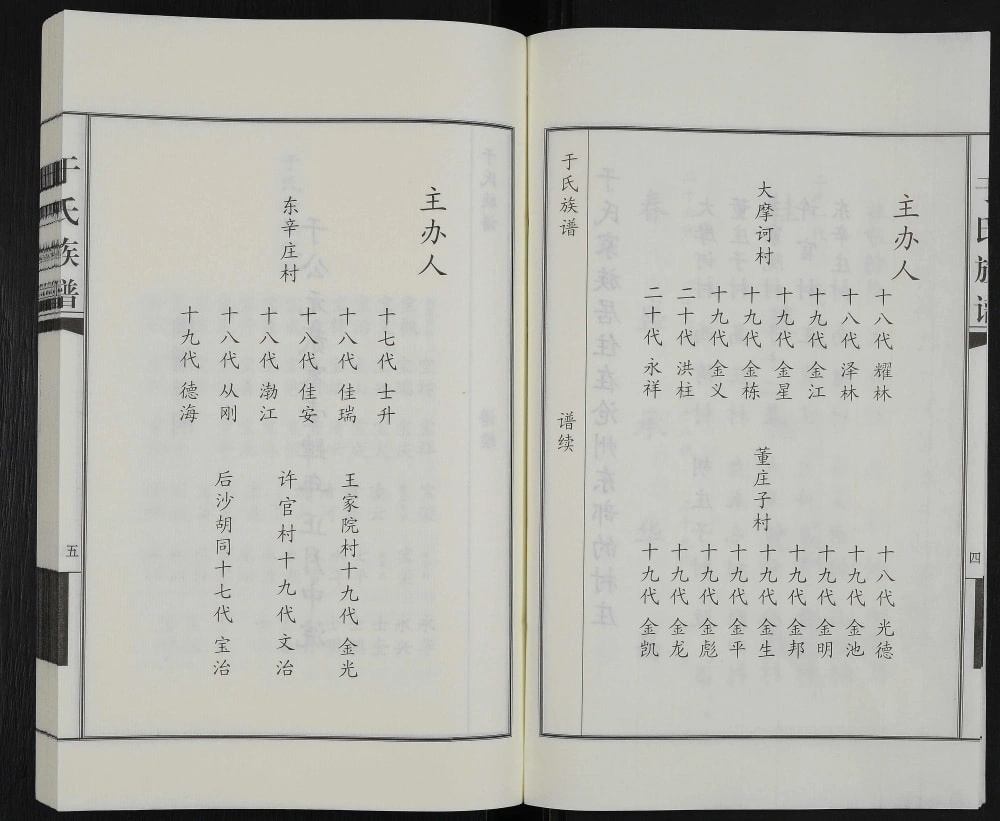 于氏族谱
四
主办人
大摩诃村
十八代 耀林
十八代 泽林
十九代 金江
十九代 金星
十九代 金栋
十九代 金义
二十代 洪柱
二十代 永祥
董庄子村
十八代 光德
十九代 金池
十九代 金明
十九代 金邦
十九代 金生
十九代 金平
十九代 金彪
十九代 金龙
十九代 金凯
于氏族谱
谱续
主办人
东辛庄村
十七代 士升
十八代 佳瑞
十八代 佳安
十八代 渤江
十八代 从刚
十九代 德海
王家院村十九代 金光
许官村十九代 文治
后沙胡同十七代 宝治
于氏族谱
五